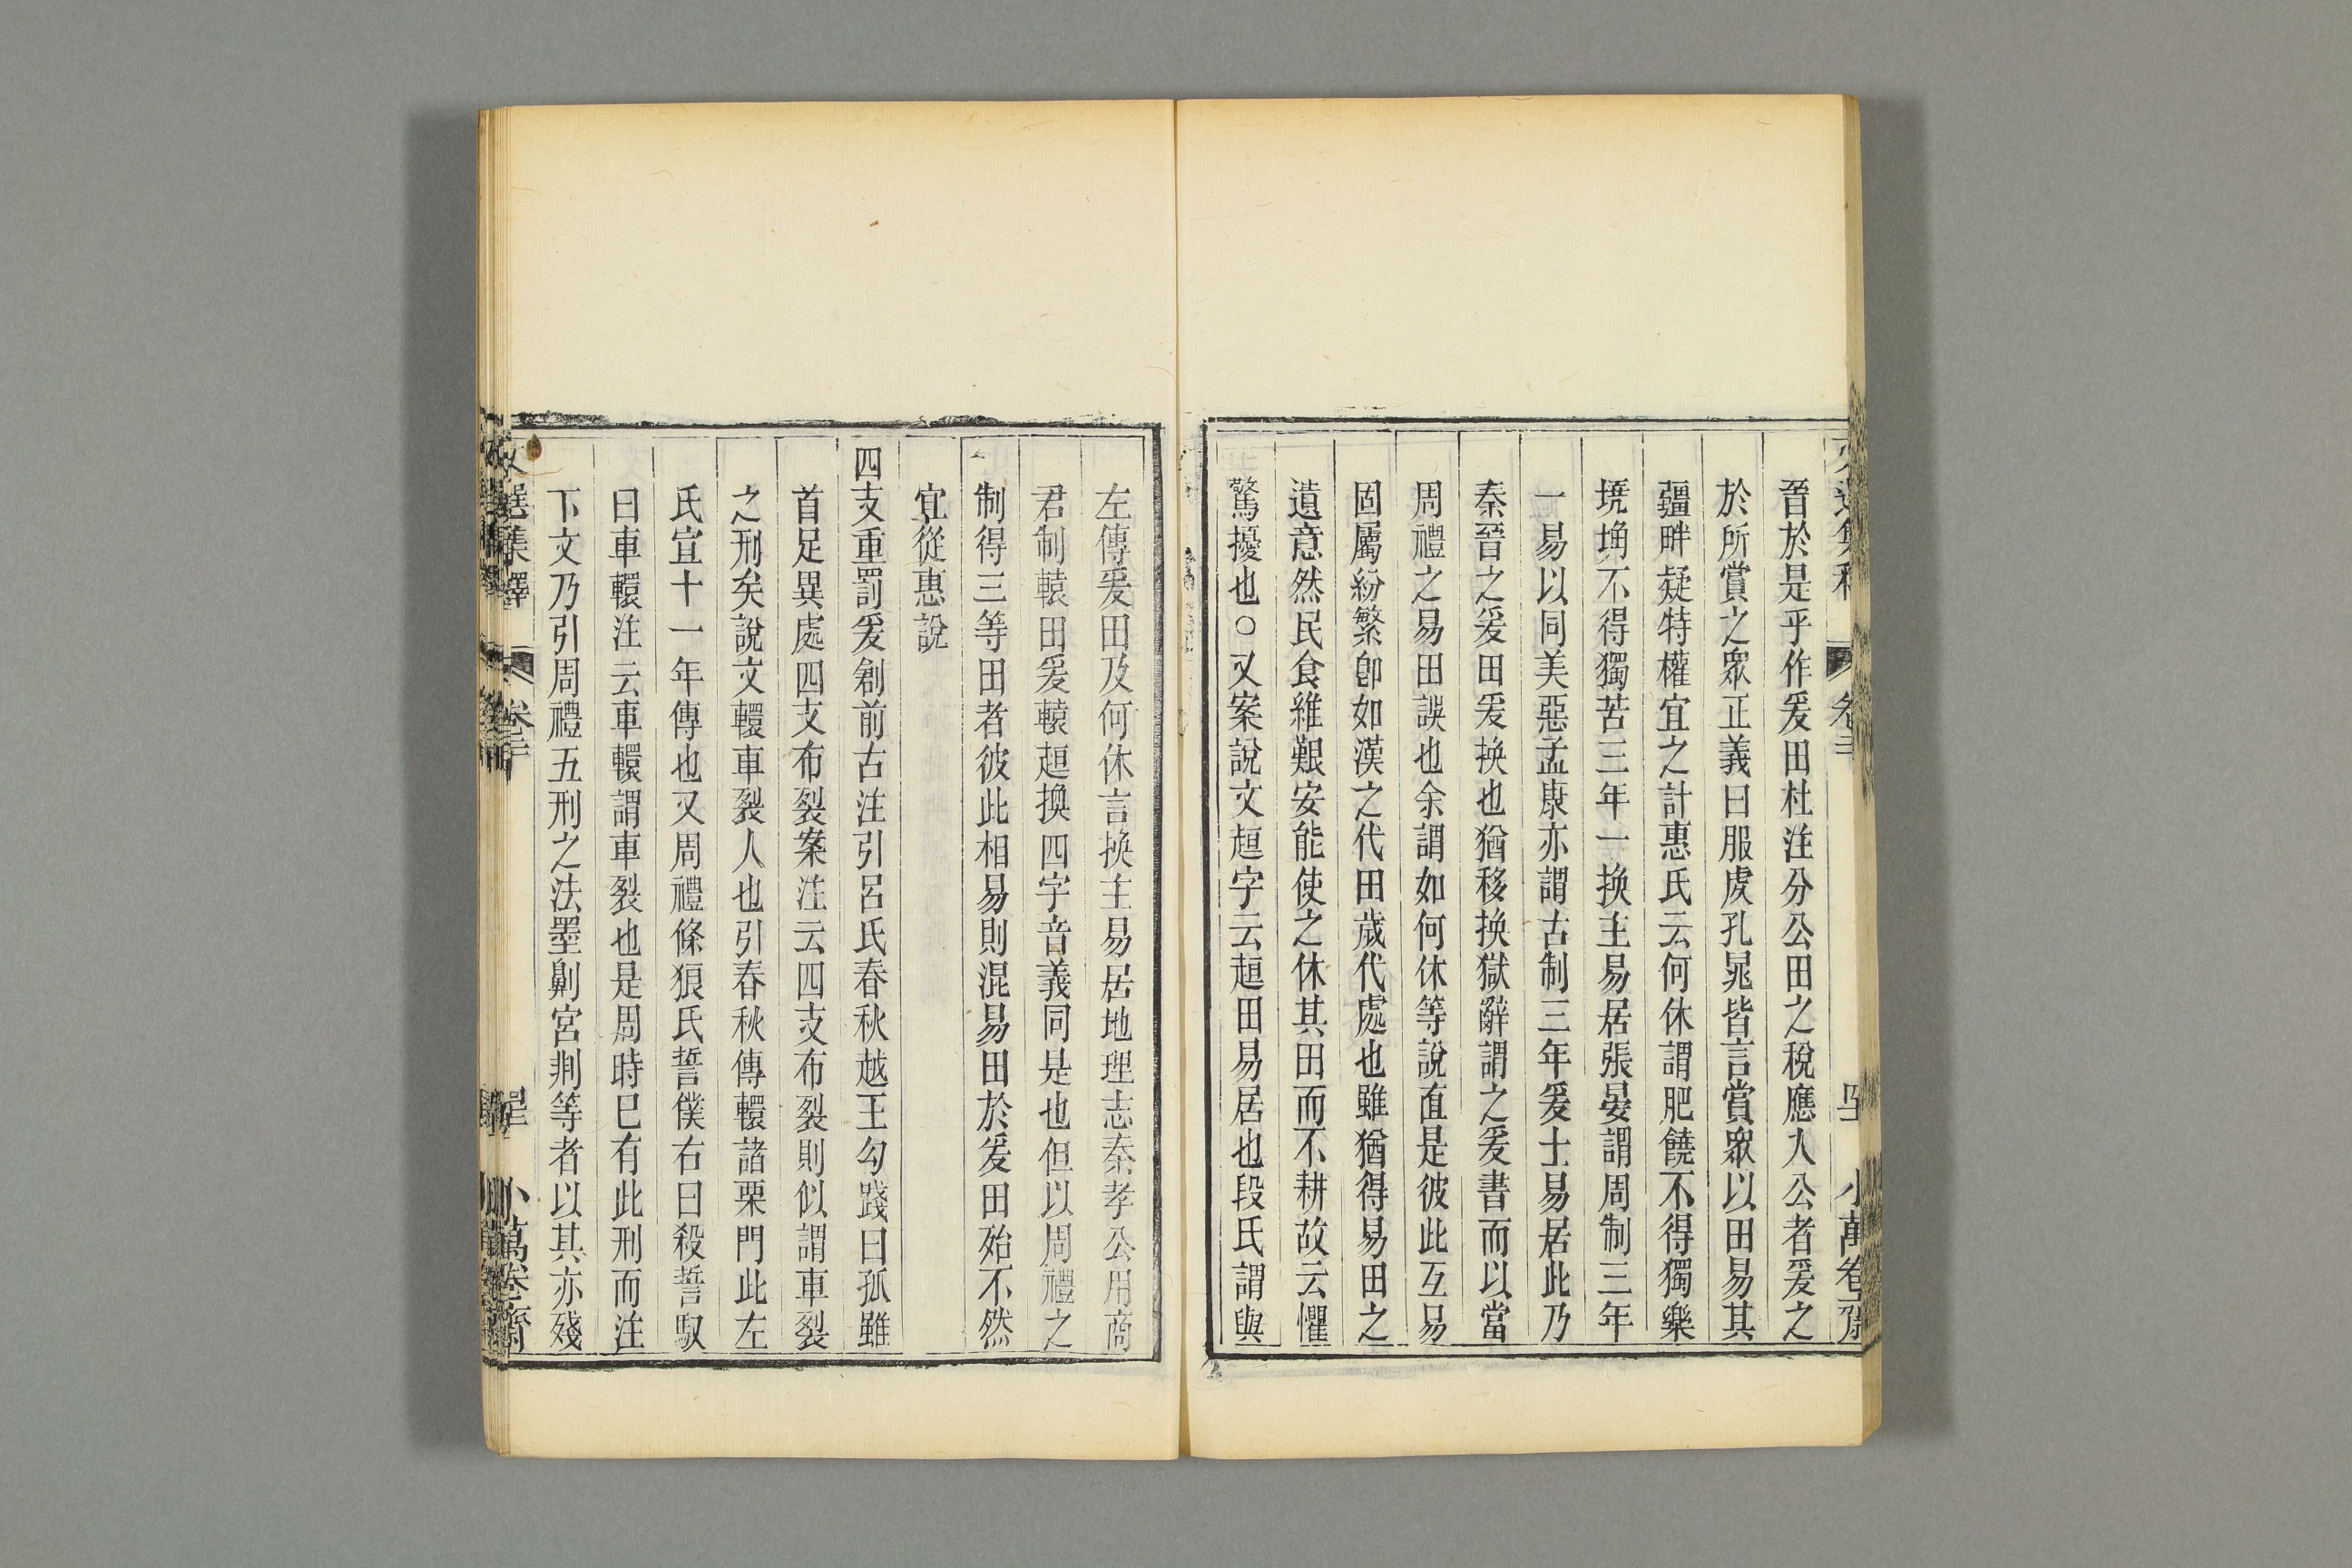 晉於是乎作爰田杜注分公田之稅應入公者爰之
於所賞之眾正義曰服虔孔晁皆言賞眾以田易其
疆畔疑特權宜之計惠氏云何休謂肥饒不得獨樂
墝埆不得獨苦三年一換主易居張晏謂周制三年
一易以同美惡孟康亦謂古制三年爰土易居此乃
秦晉之爰田爰換也猶移換獄辭謂之爰書而以當
周禮之易田誤也余謂如何休等說直是彼此互易
固屬紛繁卽如漢之代田歲代處也雖猶得易田之
遺意然民食維艱安能使之休其田而不耕故云懼
驚擾也○又案說文趄字云趄田易居也段氏謂與
左傳爰田及何休言換主易居地理志秦孝公用商
君制轅田爰轅趄換四字音義同是也但以周禮之
制得三等田者彼此相易則混易田於爰田殆不然
宜從惠說
四支重罰爰創前古注引呂氏春秋越王勾踐曰孤雖
首足異處四支布裂案注云四支布裂則似謂車裂
之刑矣說文轘車裂人也引春秋傳轘諸栗門此左
氏宣十一年傳也又周禮條狼氏誓僕右曰殺誓馭
曰車轘注云車轘謂車裂也是周時已有此刑而注
下文乃引周禮五刑之法墨劓宮剕等者以其亦殘
文選集釋 卷三 小萬卷齋